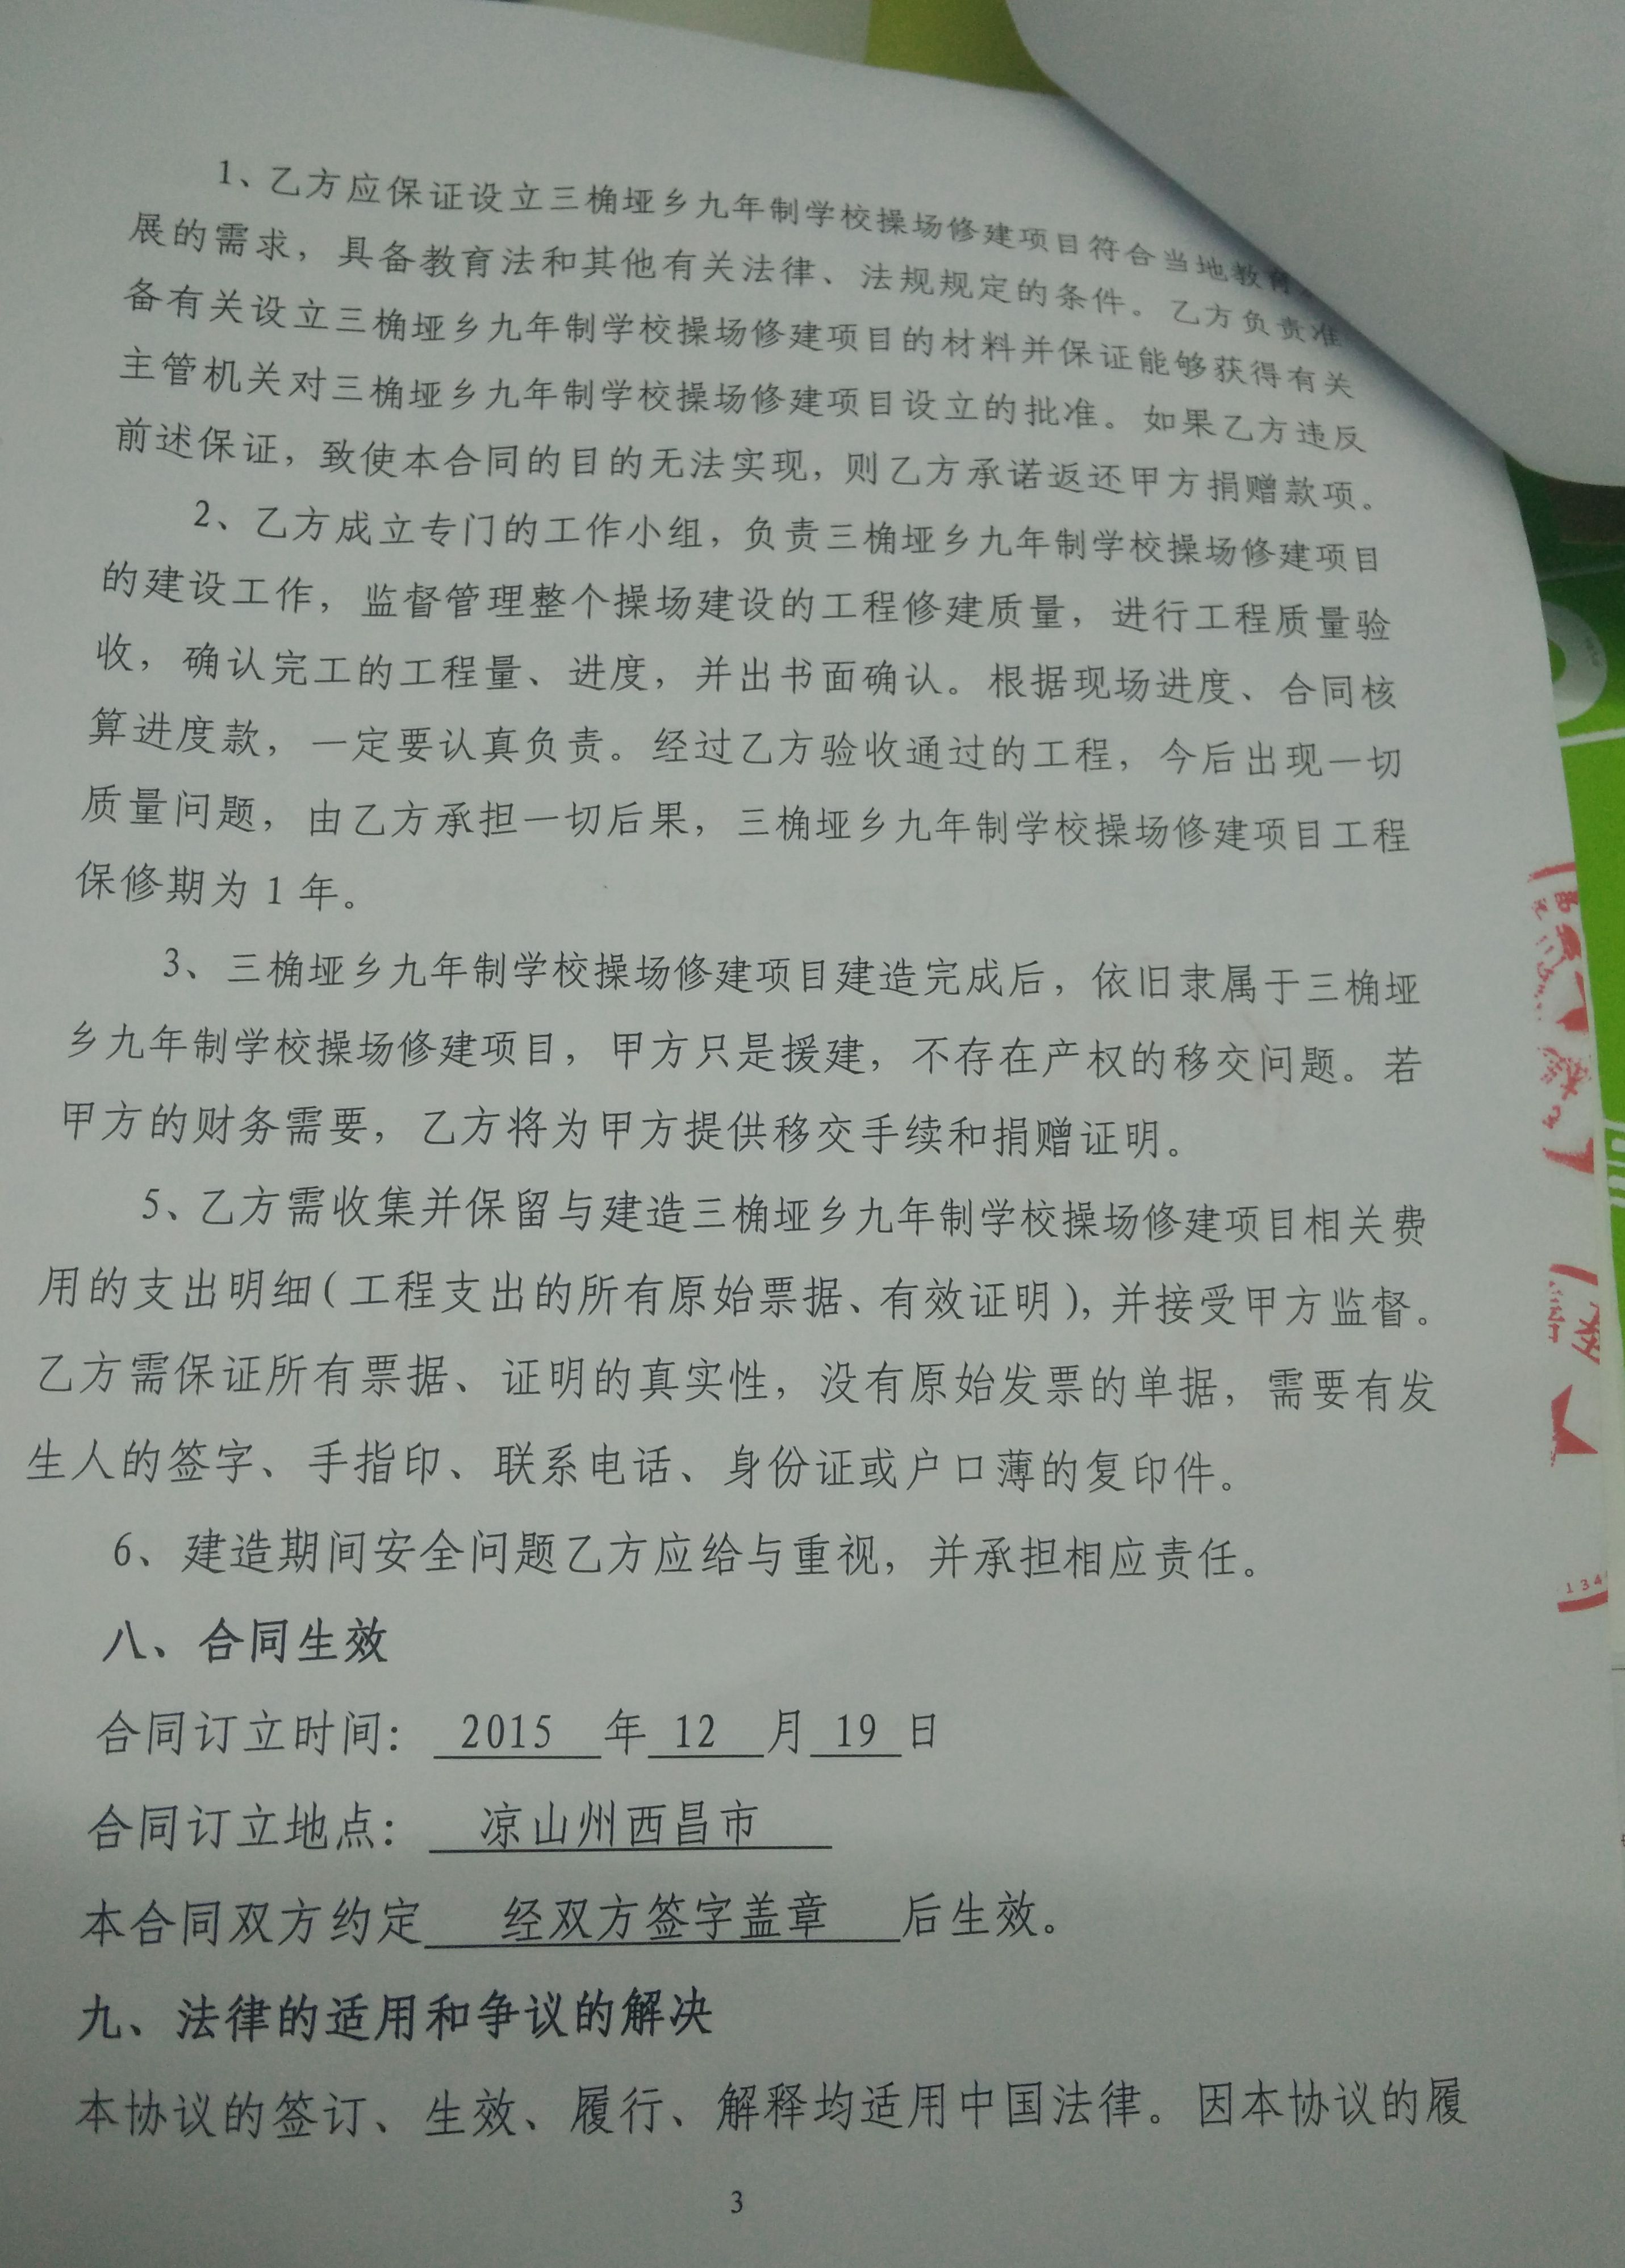 1、乙方应保证设立三桷垭乡九年制学校操场修建项目符合当地教育
展的需求，具备教育法和其他有关法律、法规规定的条件。乙方负责准
备有关设立三桷垭乡九年制学校操场修建项目的材料并保证能够获得有关
主管机关对三桷垭乡九年制学校操场修建项目设立的批准。如果乙方违反
前述保证，致使本合同的目的无法实现，则乙方承诺返还甲方捐赠款项。
2、乙方成立专门的工作小组，负责三桷垭乡九年制学校操场修建项目
的建设工作，监督管理整个操场建设的工程修建质量，进行工程质量验
收，确认完工的工程量、进度，并出书面确认。根据现场进度、合同核
算进度款，一定要认真负责。经过乙方验收通过的工程，今后出现一切
质量问题，由乙方承担一切后果，三桷垭乡九年制学校操场修建项目工程
保修期为 1 年。
3、三桷垭乡九年制学校操场修建项目建造完成后，依旧隶属于三桷垭
乡九年制学校操场修建项目，甲方只是援建，不存在产权的移交问题。若
甲方的财务需要，乙方将为甲方提供移交手续和捐赠证明。
5、乙方需收集并保留与建造三桷垭乡九年制学校操场修建项目相关费
用的支出明细（工程支出的所有原始票据、有效证明），并接受甲方监督。
乙方需保证所有票据、证明的真实性，没有原始发票的单据，需要有发
生人的签字、手指印、联系电话、身份证或户口薄的复印件。
6、建造期间安全问题乙方应给与重视，并承担相应责任。
八、合同生效
合同订立时间： 2015 年 12 月 19 日
合同订立地点： 凉山州西昌市
本合同双方约定 经双方签字盖章 后生效。
九、法律的适用和争议的解决
本协议的签订、生效、履行、解释均适用中国法律。因本协议的履
3
134